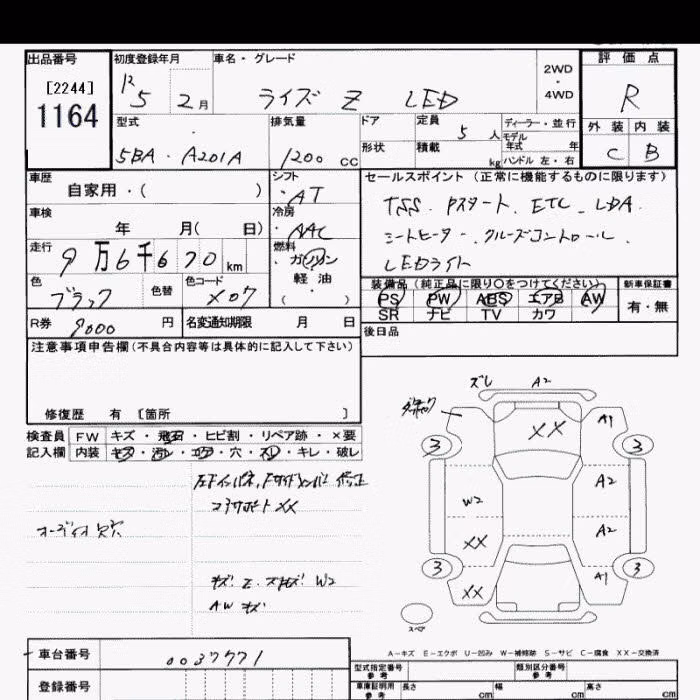 出品番号 初度登録年月 車名・グレード 2WD・4WD 評価点
[2244]
1164
R5 2月 ライズ Z LED R
型式 排気量 ドア 定員 5人 ディーラー・並行 外装 内装
5BA・A201A 1200cc 形状 積載 kg モデル年式 年 ハンドル 左・右 C B
車歴 自家用・( ) シフト ・AT セールスポイント(正常に機能するものに限ります)
車検 年 月( 日) 冷房 ・AAC TSS. Pスタート. ETC. LDA.
走行 9万6千670km 燃料 ・ガソリン シートヒーター. クルーズコントロール.
色 ブラック 色替 色コード X07 軽油・( ) LEDライト
装備品(純正品に限り○をつけてください) 新車保証書
PS PW ABS エアB AW 有・無
SR ナビ TV カワ
R券 9000円 名変通知期限 月 日 後日品
注意事項申告欄(不具合内容等は具体的に記入して下さい)
修復歴 有 [箇所 ]
検査員 FW キズ・飛石・ヒビ割・リペア跡・×要
記入欄 内装 キズ・汚レ・コゲ・穴・スレ・キレ・破レ
修正
コアサポートXX
オーディオ欠穴
W2
AW キズ
ズレ A2
XX A1
3 3
W2 A2
XX A2
3 3
XX A1
スペア
A-キズ E-エクボ U-凹み W-補修跡 S-サビ C-腐食 XX-交換済
車台番号 0037771
登録番号
型式指定番号 参考 類別区分番号 参考
車庫証明用 参考 長さ cm 幅 cm 高さ cm